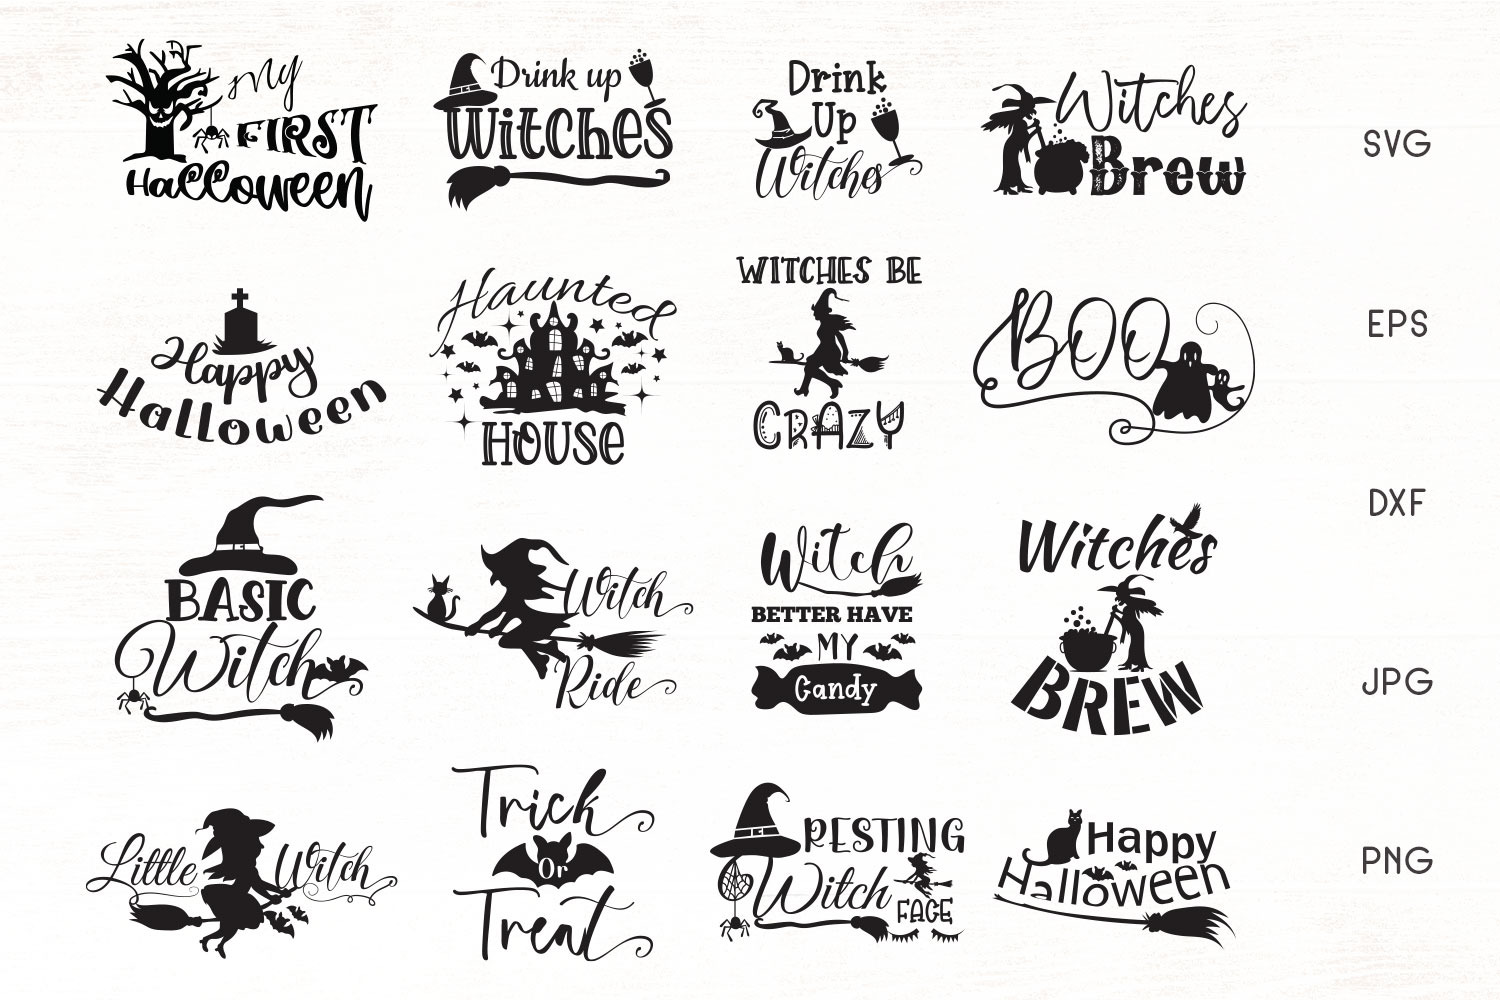 My
FIRST
Halloween
Drink up
Witches
Drink
Up
Witches
Witches
Brew
SVG
Happy
Halloween
Haunted
HOUSE
WITCHES BE
CRAZY
BOO
EPS
BASIC
Witch
Witch
Ride
Witch
BETTER HAVE
MY
Candy
Witches
BREW
DXF
JPG
Little Witch
Trick
Or
Treat
RESTING
Witch
FACE
Happy
Halloween
PNG